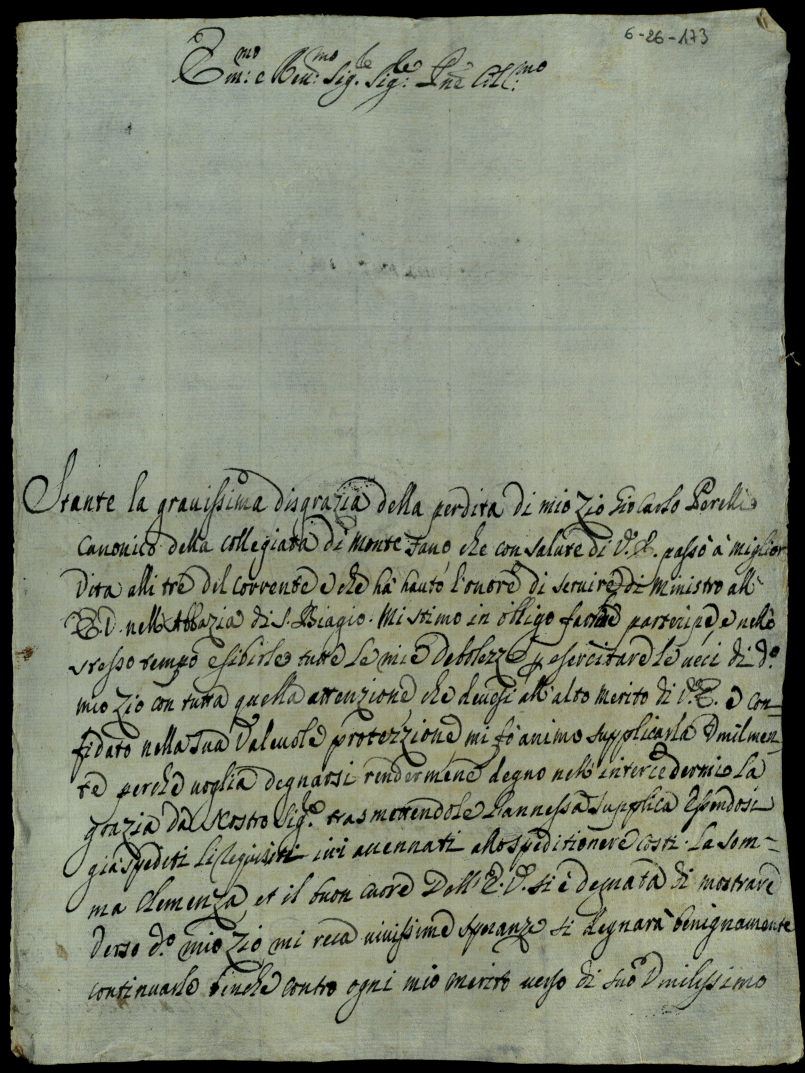 6-26-173
Em:mo e Reu:mo Sig.re Sig.re Pne Col:mo
Stante la grauissima disgrazia della perdita di mio Zio Gio Carlo Perelli
Canonico della Collegiata di Monte Fano che con salute di V.E. passò à miglior
Vita alli trè del Corrente e che hà hauto l'onore di seruire di Ministro all'
E.V. nell'Abbazia di S. Biagio. Mi stimo in obligo farne partecipe e nello
stesso tempo esibirle tutte le mie debolezze p esercitare le ueci di d.o
mio Zio con tutta quella attenzione che deuesi all'alto merito di V.E. e con-
fidato nella sua Valeuole protezzione mi fò animo supplicarla Vmilmen-
te perche uoglia degnarsi rendermene degno nell'intercedermi la
grazia da Nostro Sig.re trasmettendole l'annessa supplica essendosi
già spediti li requisiti iui accennati allo speditionere costì. La som-
ma Clemenza et il buon cuore Dell'E.V. si è degnata di mostrare
Verso d.o mio Zio mi reca uiuissime speranze si degnarà benignamente
continuarle benche contro ogni mio merito uerso di suo Vmilissimo